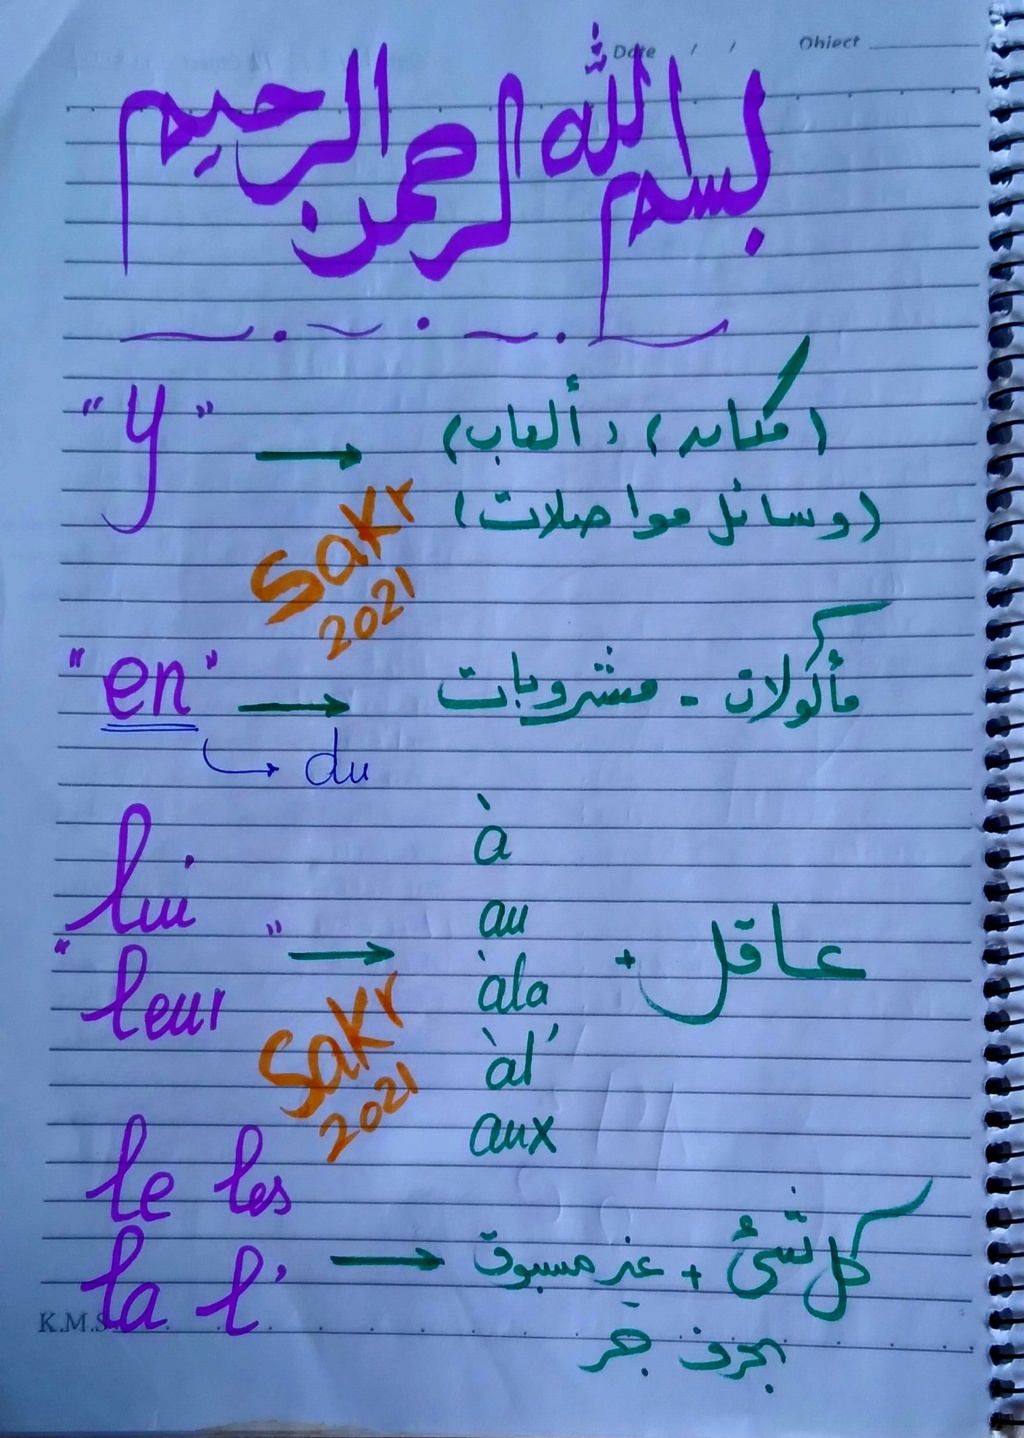 Date / / Object
بسم الله الرحمن الرحيم
"y" → (مكان) ، (ألعاب)
(وسائل مواصلات)
Sakr
2021
"en" → مأكولات - مشروبات
du
lui
"leur" → à
au
àla
àl'
aux
+ عاقل
Sakr
2021
le les
la l' → كل شئ + غير مسبوق
بحرف جر
K.M.S